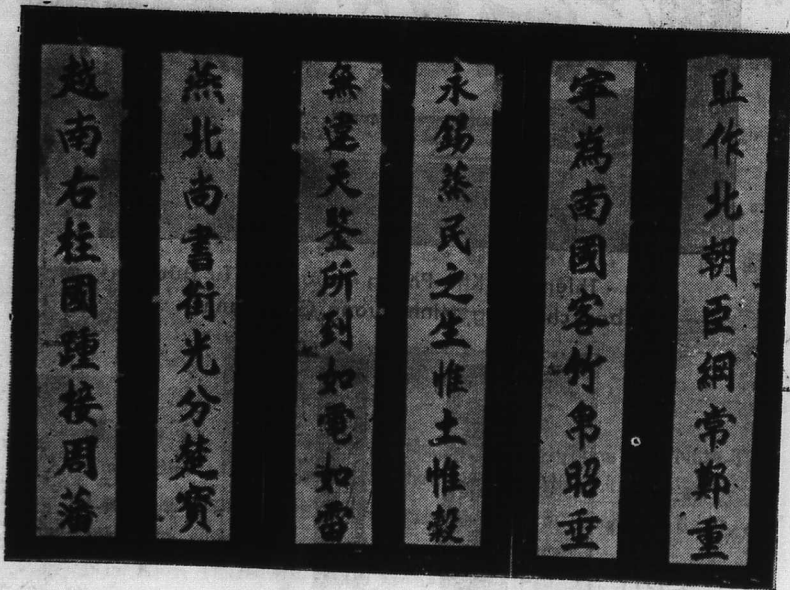 耻作北朝臣綱常鄭重
寜為南國客竹帛昭垂
永錫蒸民之生惟土惟榖
無違天鑒所到如電如雷
燕北尚書銜光分楚寳
越南右柱國踵接周藩